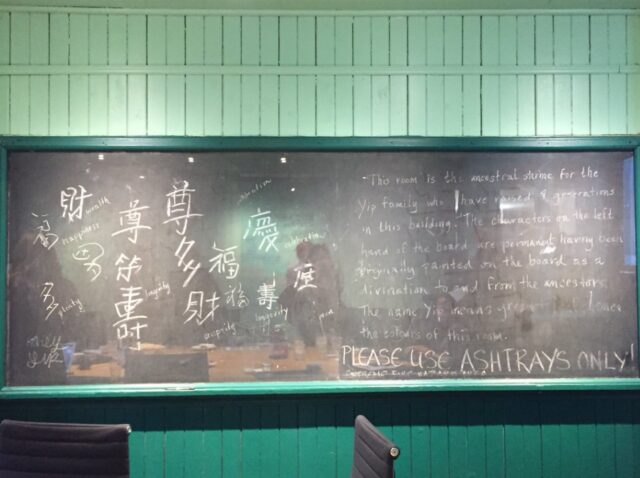 財
wealth
福
happiness
多
plenty
尊
重
longevity
尊
多
財
福
福
prosperity
celebration
慶
celebration
壽
longevity
"This room is the ancestral shrine for the
Yip family who have raised 4 generations
in this building." The characters on the left
hand of the board are permanent having been
originally painted on the board as a
divination to and from the ancestors.
The name Yip means green leaf hence
the colours of this room.
PLEASE USE ASHTRAYS ONLY!